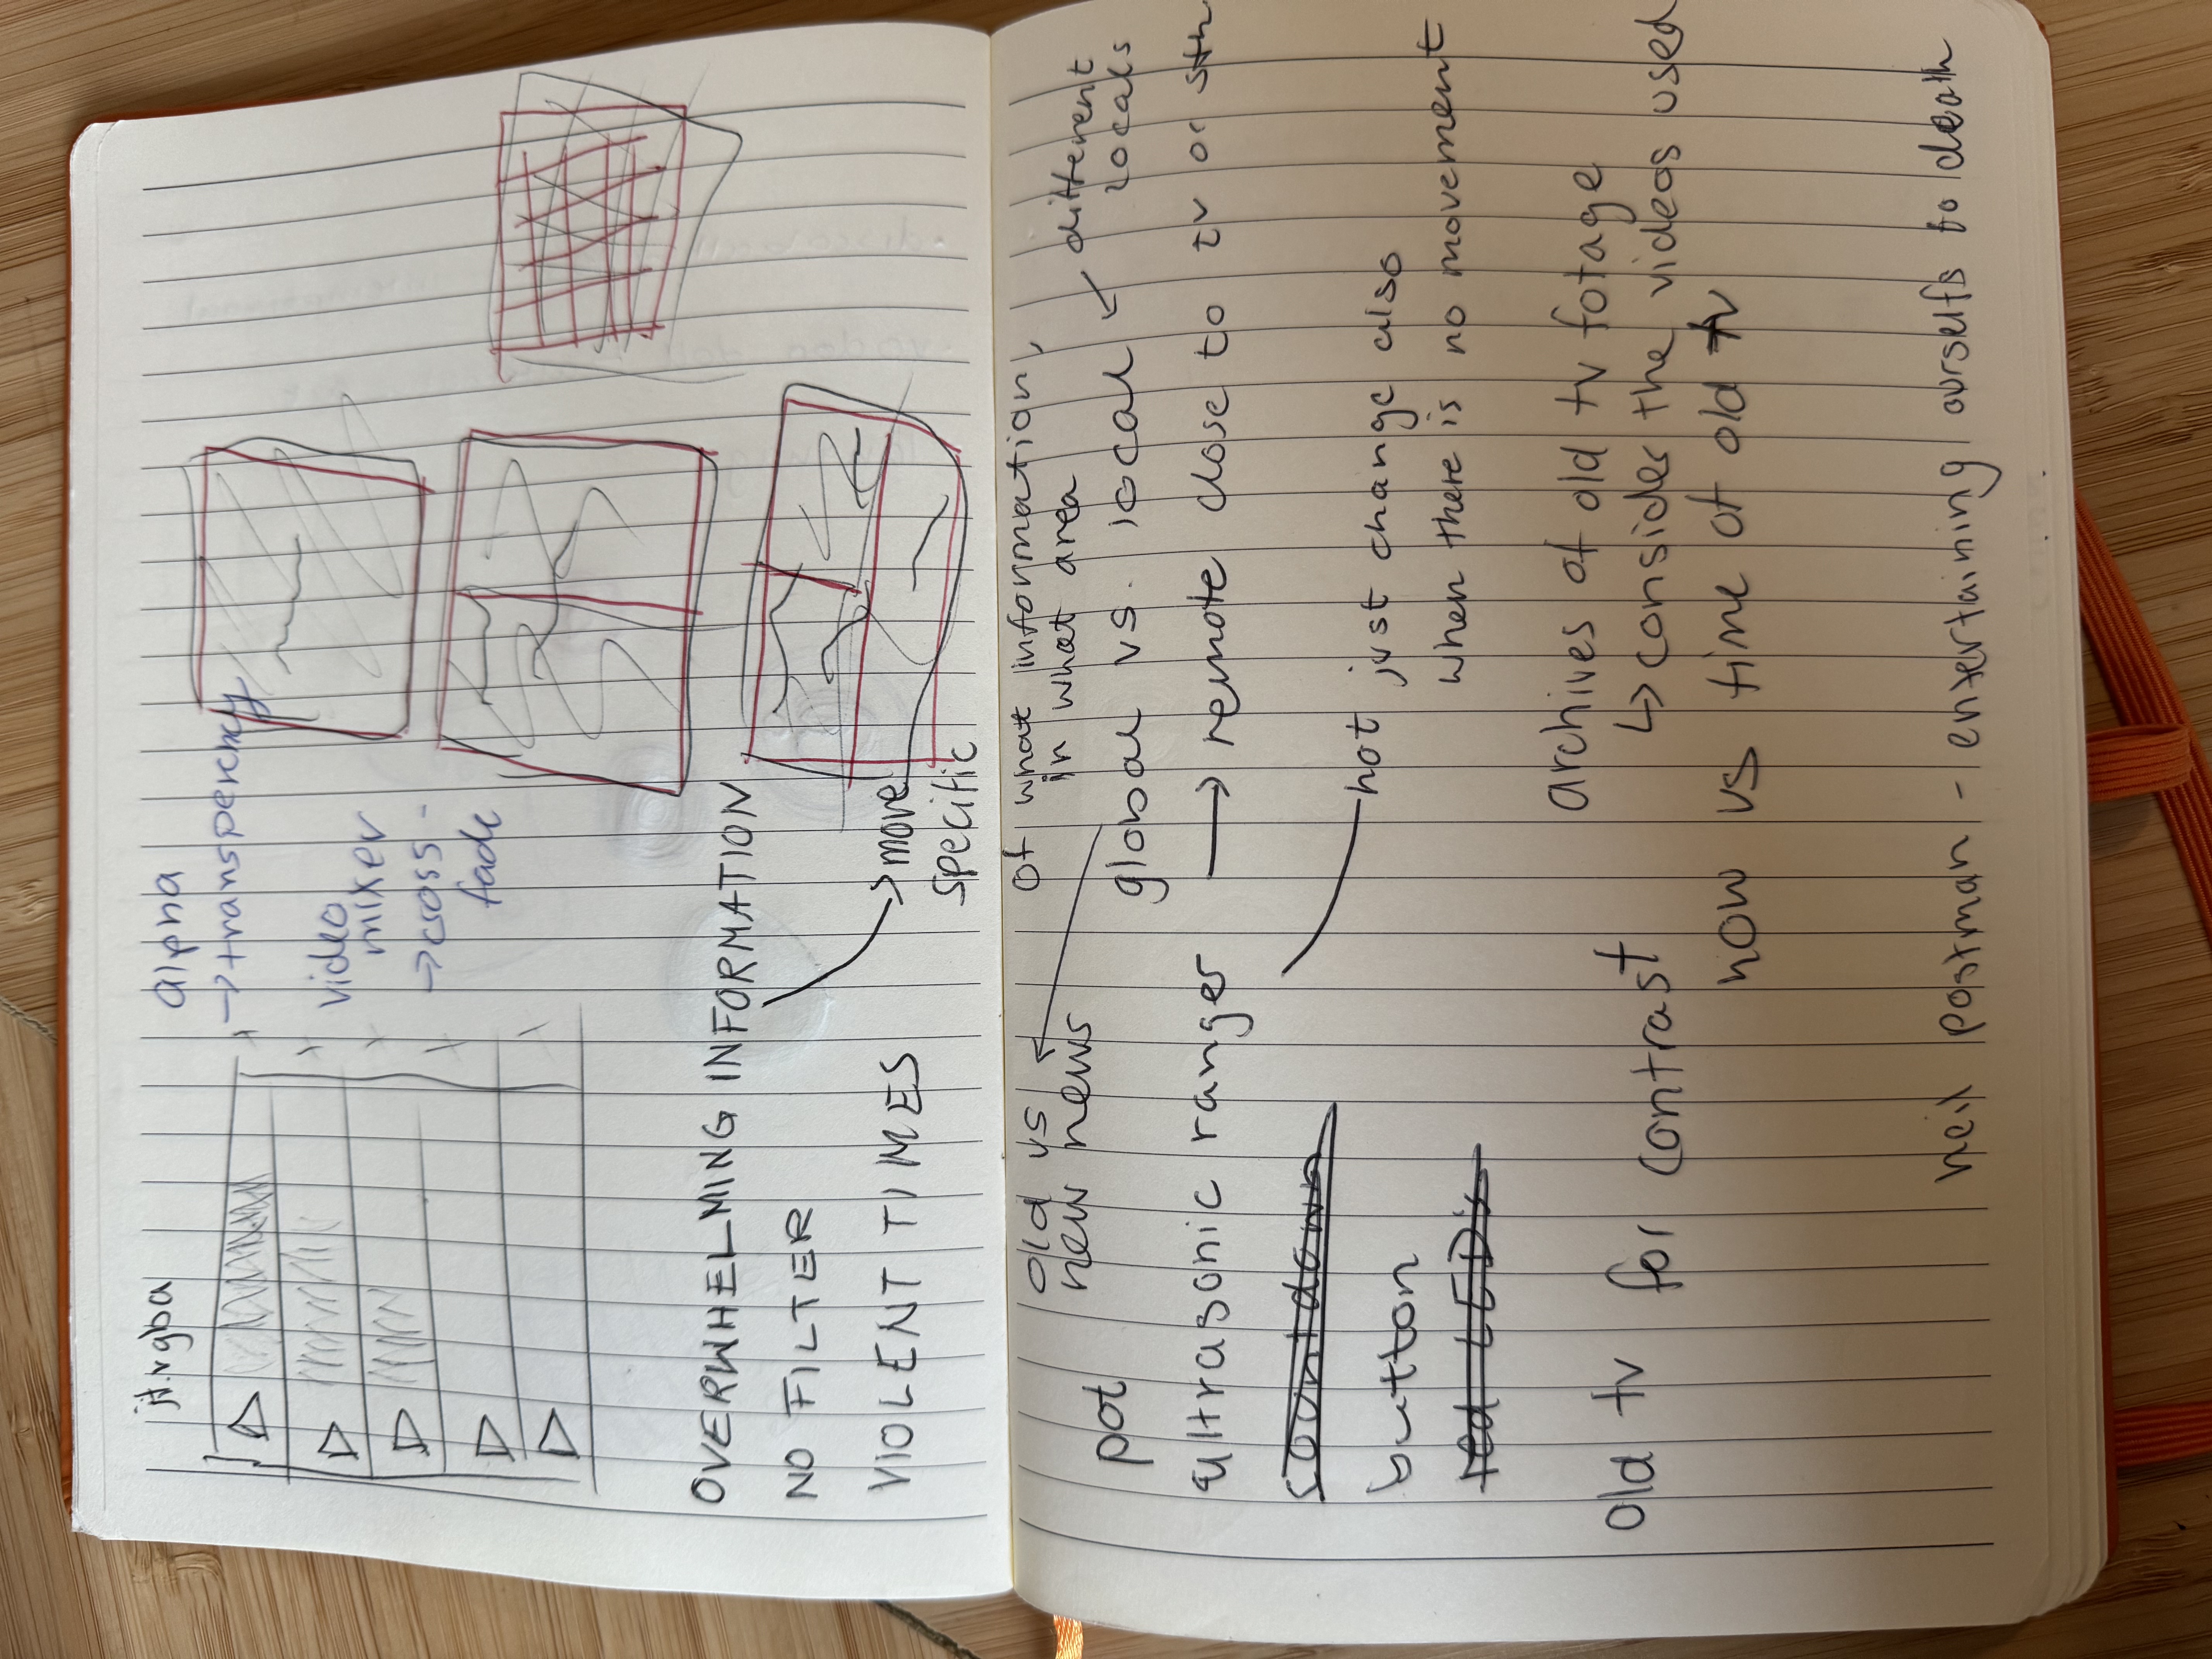 jit.rgba
alpha
→ transperency
video
mixer
→ cross-
fade
OVERWHELMING INFORMATION
NO FILTER
→ more
specific
VIOLENT TIMES
of what information,
in what area
different
locals
old vs
new news
pot
global vs. local
ultrasonic ranger
→ remote close to tv or sth
countdown
not just change also
when there is no movement
button
red LED's
archives of old tv fotage
↳ consider the videos used
old tv for contrast
now vs time of old tv
neil postman - entertaining ourselfs to death